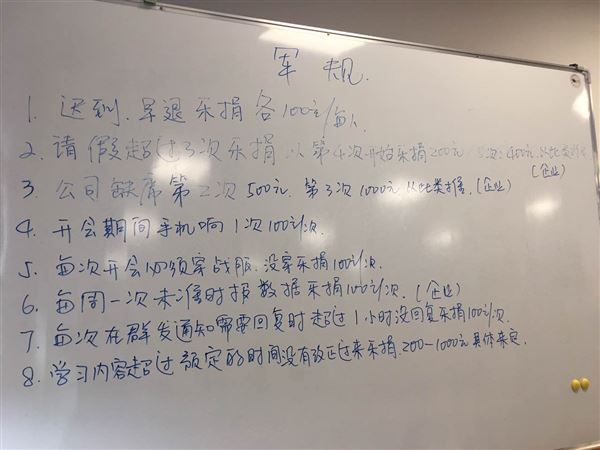 军规
1. 迟到.早退乐捐各100元/每人.
2. 请假超过3次乐捐从第4次开始乐捐200元 次:400元.以此类推
(企业)
3. 公司缺席第二次500元.第3次1000元以此类推.(企业)
4. 开会期间手机响1次100元/次.
5. 每次开会必须穿战服.没穿乐捐100元/次.
6. 每周一次未准时报数据乐捐100元/次.(企业)
7. 每次在群发通知需要回复时超过1小时没回复乐捐100元/次.
8. 学习内容超过额定的时间没有改正过来乐捐.200-1000元具体来定.